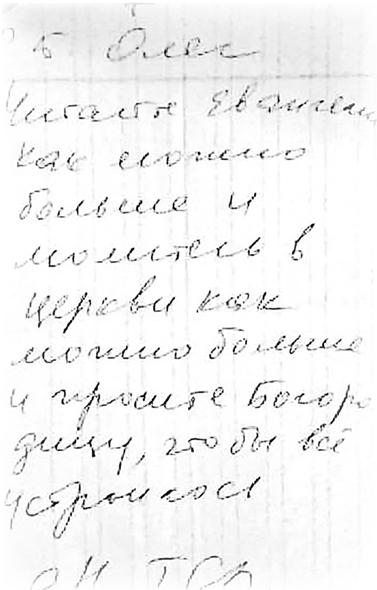 Олег
Читайте Евангели
как можно
больше и
молитесь в
церкви как
можно больше
и просите Богоро
дицу, чтобы всё
устроилось